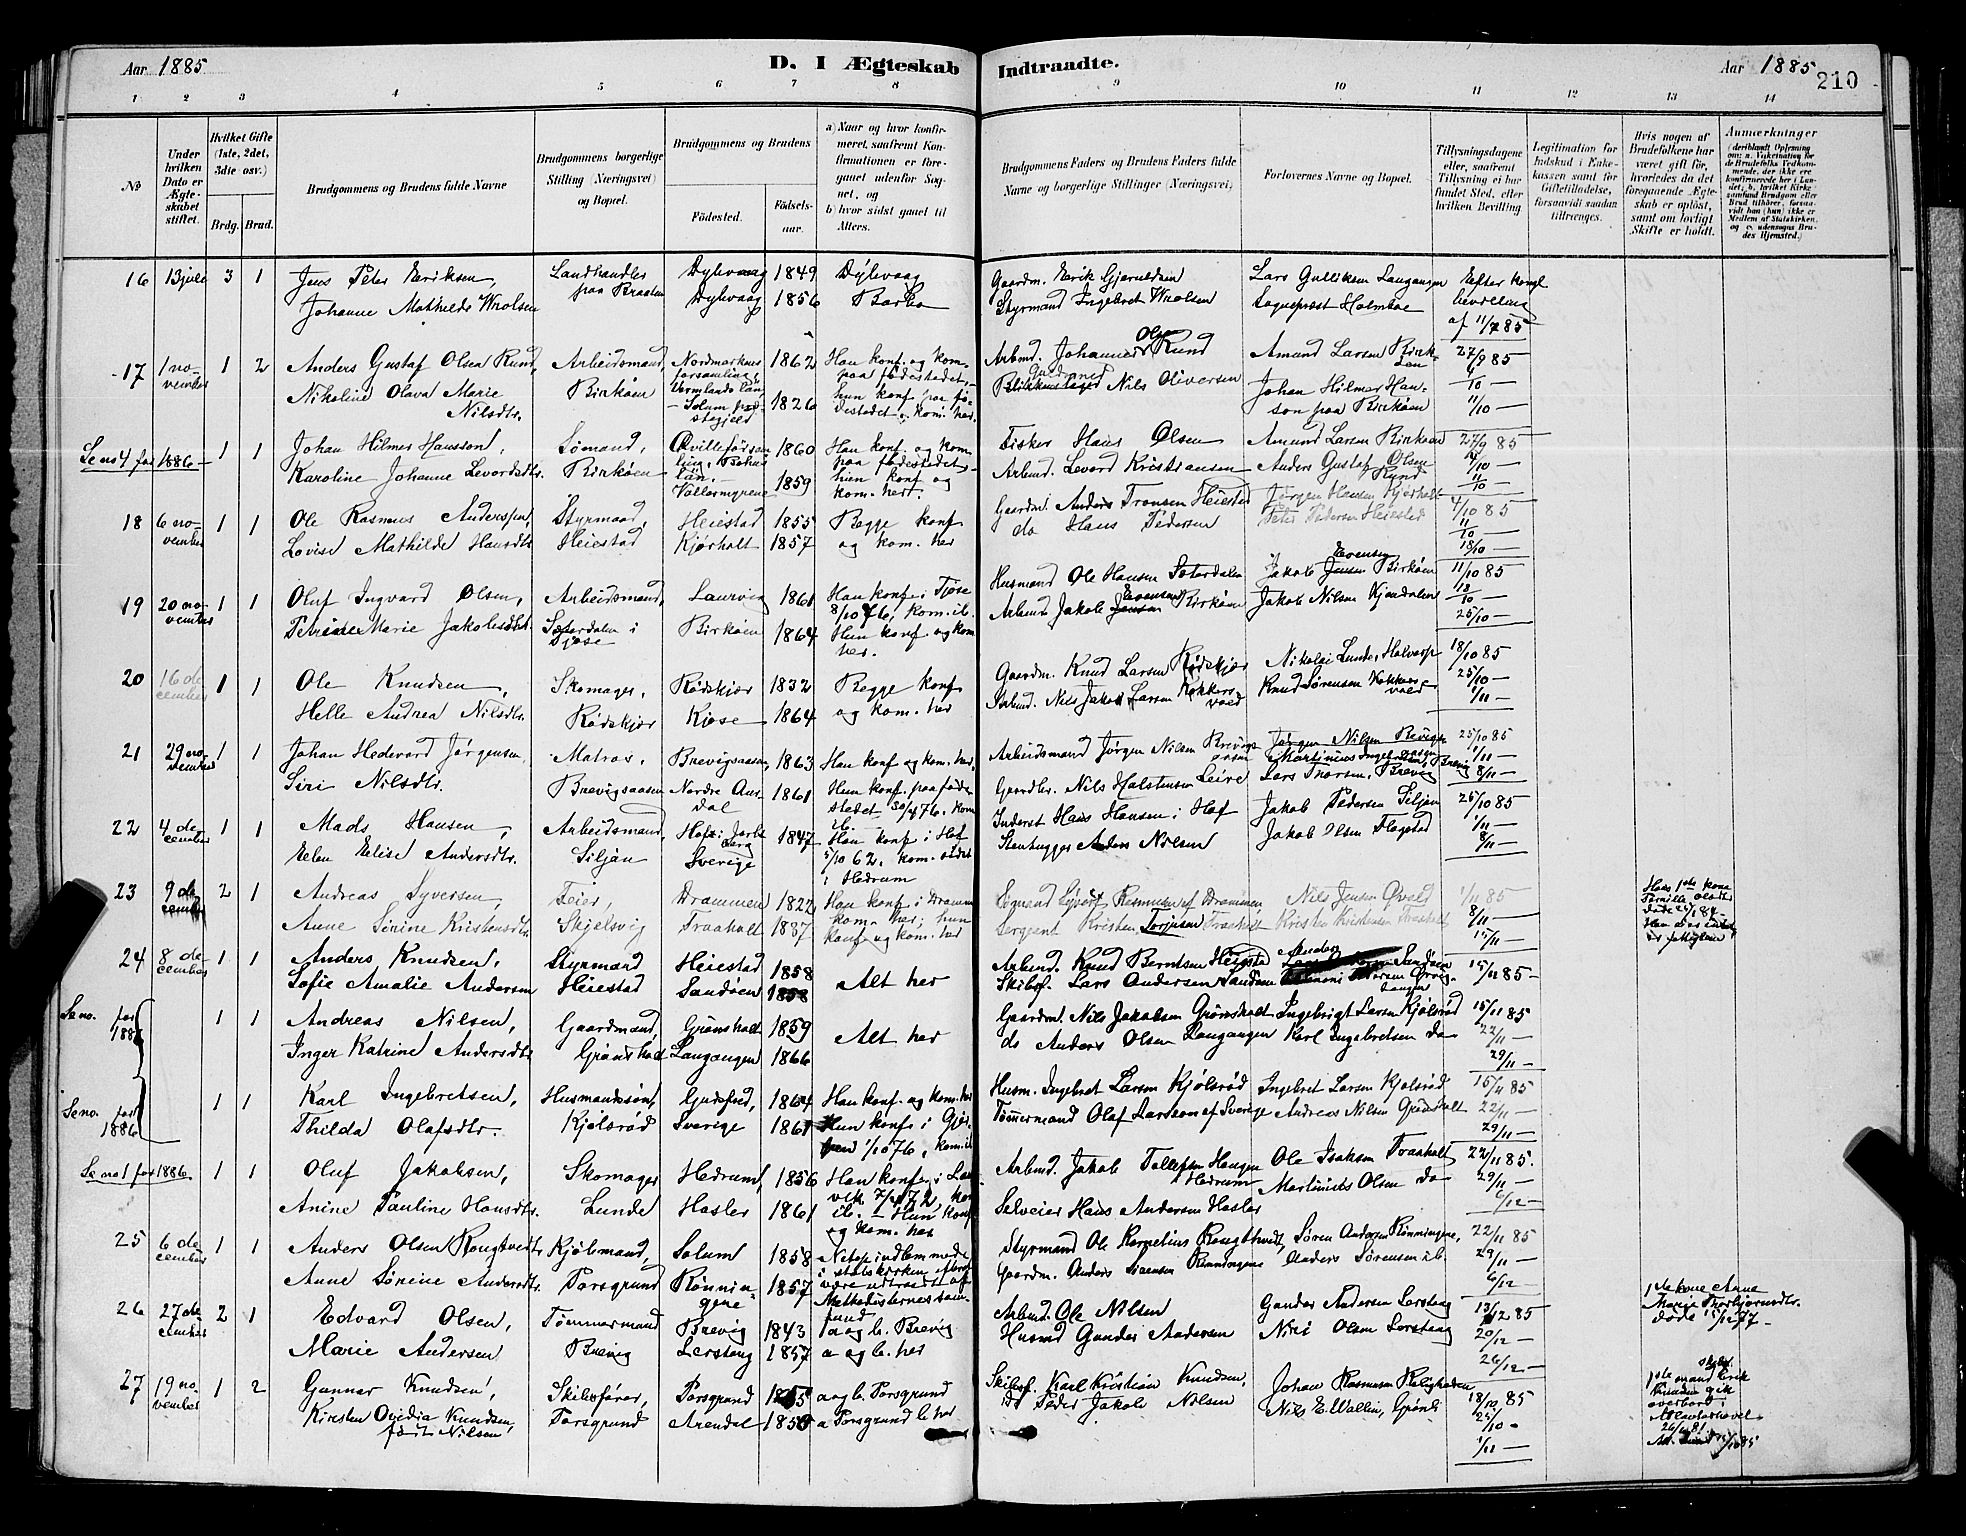 Aar 1885
D. I Ægteskab Indtraadte.
Aar 1885
210
1 2 3 4 5 6 7 8 9 10 11 12 13 14
No
Under hvilken Dato er Ægteskabet stiftet.
Hvilket Gifte (1ste, 2det, 3die osv.)
Brdg. Brud.
Brudgommens og Brudens fulde Navne
Brudgommens borgerlige Stilling (Næringsvei) og Bopæl.
Brudgommens og Brudens
Fødested.
Fødselsaar.
a) Naar og hvor konfirmeret, saafremt Konfirmationen er foregaaet udenfor Sognet, og
b) hvor sidst gaaet til Alters.
Brudgommens Faders og Brudens Faders fulde Navne og borgerlige Stillinger (Næringsvei)
Forlovernes Navne og Bopæl.
Tillysningsdagene eller, saafremt Tillysning ei har fundet Sted, efter hvilken Bevilling
Legitimation for Indskud i Enkekassen samt for Giftetilladelse, forsaavidt saadan tiltrænges.
Hvis nogen af Brudefolkene har været gift før, hvorledes da det foregaaende Ægteskab er opløst, samt om lovligt Skifte er holdt.
Anmerkninger
16 13 juli 3 1 Jens Peter Eriksen, Landhandler Dybvaag 1849 Dybvaag Gaardm. Erik Gjeruldsen Lars Gulliksen Langangen Efter kongl
Johanne Mathilde Wrolsen paa Braaten Dybvaag 1856 Barbo Styrmand Ingebret Wrolsen Sognepræst Holmboe bevilling
af 11/7 85
17 1 november 1 2 Anders Gustaf Olsen Rund, Arbeidsmand, Nordmarkens forsamling, Vermlands län 1862 Han konf. og kom. paa fødestedet, Arbmd. Johannes Olsen Rund Amund Larsen Birkøen 27/9 85
Nikoline Olava Marie Nilsdtr. Birkøen Solum præstegjeld 1826 hun konf. paa fødestedet, kom. her. Nils Oliversen Johan Hilmer Hanson paa Birkøen 11/10 —
Se no 4 for 1886 — 1 1 Johan Hilmer Hansson, Sømand, 1860 Han konf. og kom. paa fødestedet, Fisker Hans Olsen Amund Larsen Birkøen 27/9 85
Karoline Johanne Levordsdtr. Birkøen Vallermyrene 1859 hun konf. og kom. her. Arbmd. Levord Kristiansen Anders Gustaf Olsen Rund 4/10 —
11/10 —
18 6 november 1 1 Ole Rasmus Anderssen, Styrmand, Heiestad 1855 Begge konf Gaardm. Anders Tronsen Heiestad Jørgen Hansen Kjørholt 4/10 85
Lovise Mathilde Hansdtr. Heiestad Kjørholt 1857 og kom. her do Hans Pedersen Peter Pedersen Heiestad 11/10 —
18/10 —
19 20 november 1 1 Oluf Ingvard Olsen, Arbeidsmand, Laurvig 1861 Han konf. i Tjøse 8/10 76, kom. ib. Husmand Ole Hansen Sæterdalen Jakob Evensen Birkøen 11/10 85
Petrine Marie Jakobsdtr. Sæterdalen i Tjøse Birkøen 1864 Hun konf og kom her. Arbmd. Jakob Evensen Birkøen Jakob Nilsen Kjendalen 18/10 —
25/10 —
20 16 december 1 1 Ole Knudsen, Skomager, Rødskjær 1832 Begge konf Gaardm. Knud Larsen Rødskjær Nikolai Lunde, 18/10 85
Helle Andrea Nilsdtr. Rødskjær Kjøse 1864 og kom. her Arbmd. Nils Jakob Larsen Kokkersvold Knud Sørensen Kokkersvold 25/10 —
1/11 —
21 29 november 1 1 Johan Hedevard Jørgensen Matros, Brevigsaasen, 1863 Han konf og kom. her. Arbeidsmand Jørgen Nilsen Brevigsaasen Jørgen Nilsen Brevigsaasen 25/10 85
1/11 —
Siri Nilsdtr. Brevigsaasen Nordre Aurdal 1861 Hun konf. paa fødestedet Gaardbr. Nils Halstensen Leire Lars Thorsen, Brevig 8/11 —
22 4 december 1 1 Mads Hansen, Arbeidsmand, Hof i Jarlsberg 1847 Han konf. i Hof Inderst Hans Hansen i Hof Jakob Pedersen Siljan 25/10 85
1/11 —
Elen Elise Andersdtr. Siljan Sverige 5/10 62, kom. sidst i Hedrum Stenhugger Anders Nilsen Jakob Olsen Flogstad 8/11 —
23 9 december 2 1 Andreas Syversen, Feier, Drammen 1822 Han konf. i Drammen Søgnend Syvert Rasmussen af Drammen Nils Jensen Øvald 1/11 85
Anne Serine Kristensdtr. Skjelsvig Traaholt 1837 kom. her; hun konf. og kom. her Sergeant Kristen Torjusen Traaholt Kristen Kristensen Traaholt 8/11 —
15/11 —
Hans 1ste kone Pernille Olsdtr døde
24 8 december 1 1 Anders Knudsen, Styrmand Heiestad 1858 Alt her Arbmd. Knud Berntsen Heiestad Anders Sandøen 15/11 85 —
Sofie Amalie Andersen Heiestad Sandøen 1858 Skibsf. Lars Andersen Sandøen
Se no. for 1886 1 1 Andreas Nilsen, Gaardmand, Grønsholt 1859 Alt her Gaardm. Nils Jakobsen Grønsholt Ingebrigt Larsen Kjølsrød 15/11 85
Inger Katrine Andersdtr. Grønsholt Langangen 1866 do Anders Olsen Langangen Karl Ingebretsen do 22/11 —
29/11 —
Se no. for 1886 1 1 Karl Ingebretsen, Husmandssøn, 1864 Han konf. og kom. her Husm. Ingebret Larsen Kjølsrød Ingebret Larsen Kjølsrød 15/11 85
Thilda Olafsdtr. Kjølsrød Sverige 1861 Hun konf. i 1/10 76, kom. ib Tømmermand Olaf Larsson af Sverige Andreas Nilsen Grønsholt 22/11 —
29/11 —
Se no 1 for 1886 1 1 Oluf Jakobsen, Skomager Hedrum, 1856 Han konf. i Laurvik Arbmd. Jakob Tollefsen Haugen Hedrum Ole Isaksen Traaholt 22/11 85.
29/11 —
Anine Pauline Hansdtr. Lunde Hasler 1861 ib. — Hun konf og kom. her Selveier Hans Andersen Hasler Martinius Olsen do 6/12 —
25 6 december 1 1 Anders Olsen Rougtvedt, Kjøbmand, Solum 1858 Netop indlemmede i statskirken efter at være udtraadt af Methodisternes samfund Styrmand Ole Kornelius Rougtvedt, Søren Andersen Rønningene, 22/11 85
Anne Sørine Andersdtr. Porsgrund Rønningene 1857 Gaardm. Anders Sørensen Rønningene Anders Sørensen ib. 29/11 —
6/12 —
26 27 december 2 1 Edvard Olsen, Tømmermand Brevig 1843 a og b. Brevig Arbmd. Ole Nilsen Gunder Andersen Lerstang 13/12 85
Marie Andersen Brevig Lerstang 1857 a og b. her Husmd Gunder Andersen Nils Olsen Lerstang 20/12 —
26/12 —
1ste kone Anne Maria Thorbjørnsdtr. døde
27 19 november 1 2 Gunnar Knudsen, Skibsfører, Porsgrund 1855 a og b. Porsgrund Skibsf. Karl Kristian Knudsen, Johan Rasmussen 18/10 85
Kirsten Ovidia Knudsen, født Nilsen, Porsgrund Arendal 1850 a Porsgrund b. her Do Peder Jakob Nilsen Nils E. Wallin, Grønli 25/10 —
1/11 —
1ste mand Erik Knudsen gik overbord i Atlanterhavet